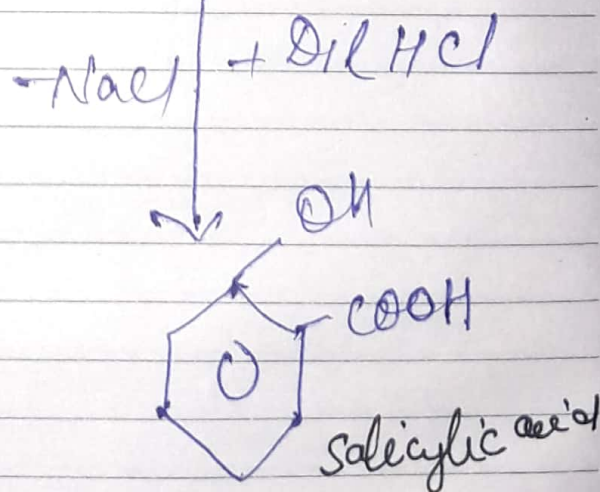 -NaCl + Dil HCl
OH
COOH
Salicylic acid